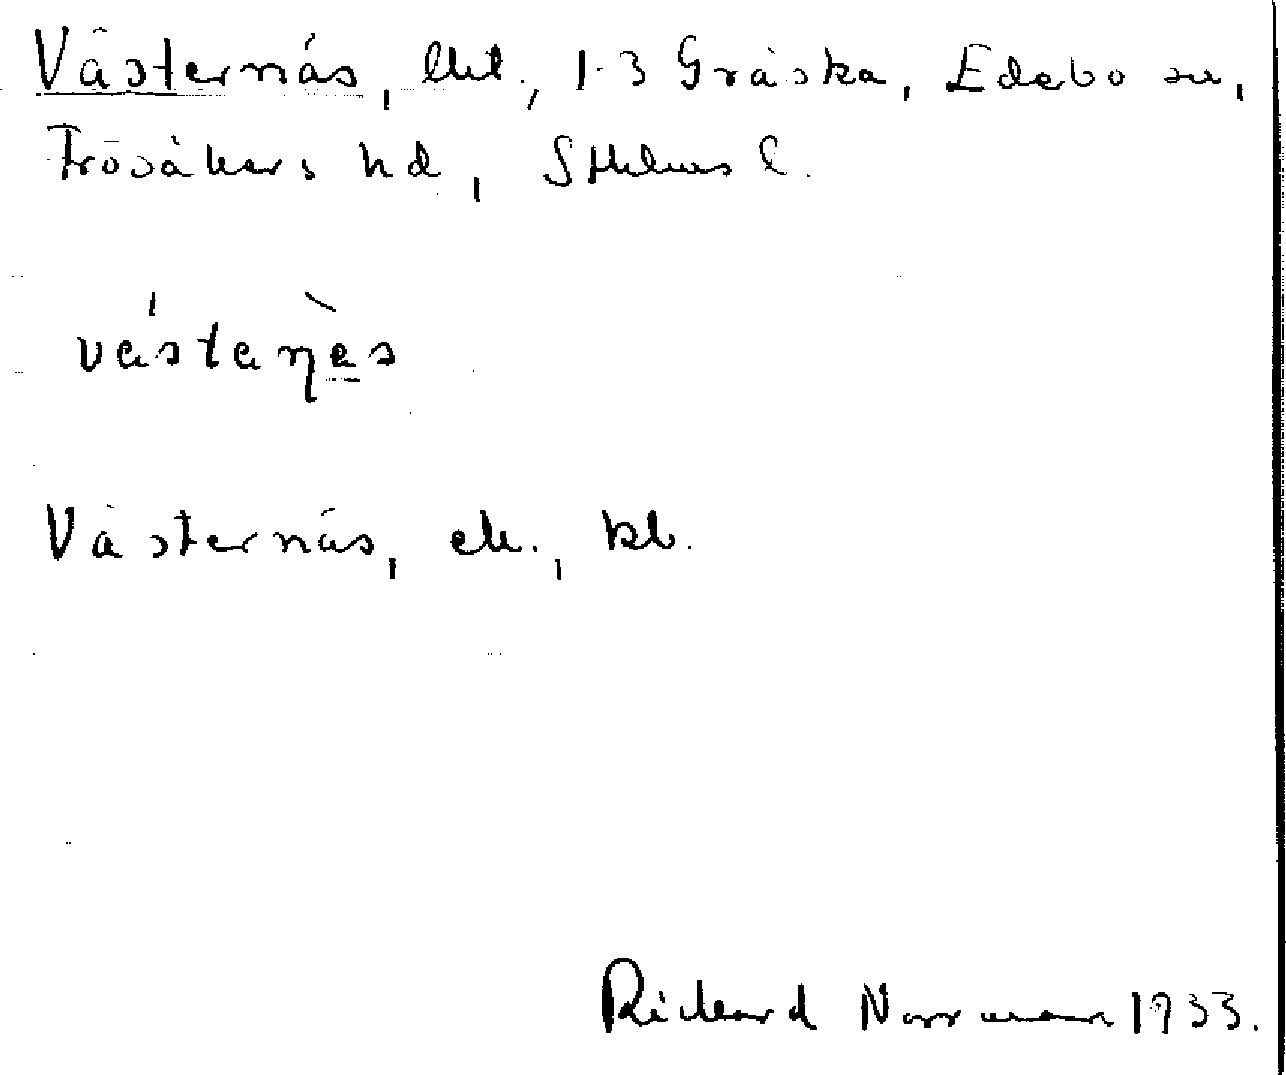 Västernäs, lht., 1-3 Gräska, Edebo sn,
Frösåkers hd, Sthlms l.
västaṇäs
Västernäs, ek., kb.
Rickard Norrman 1933.